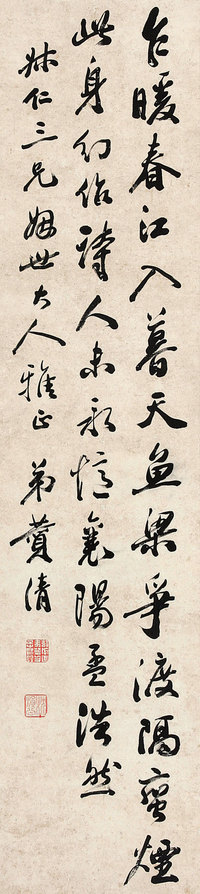 乍暖春江入暮天魚梁爭渡隔蠻煙
此身幻作詩人未永憶襄陽孟浩然
仁三兄姻世大人雅正 弟 清